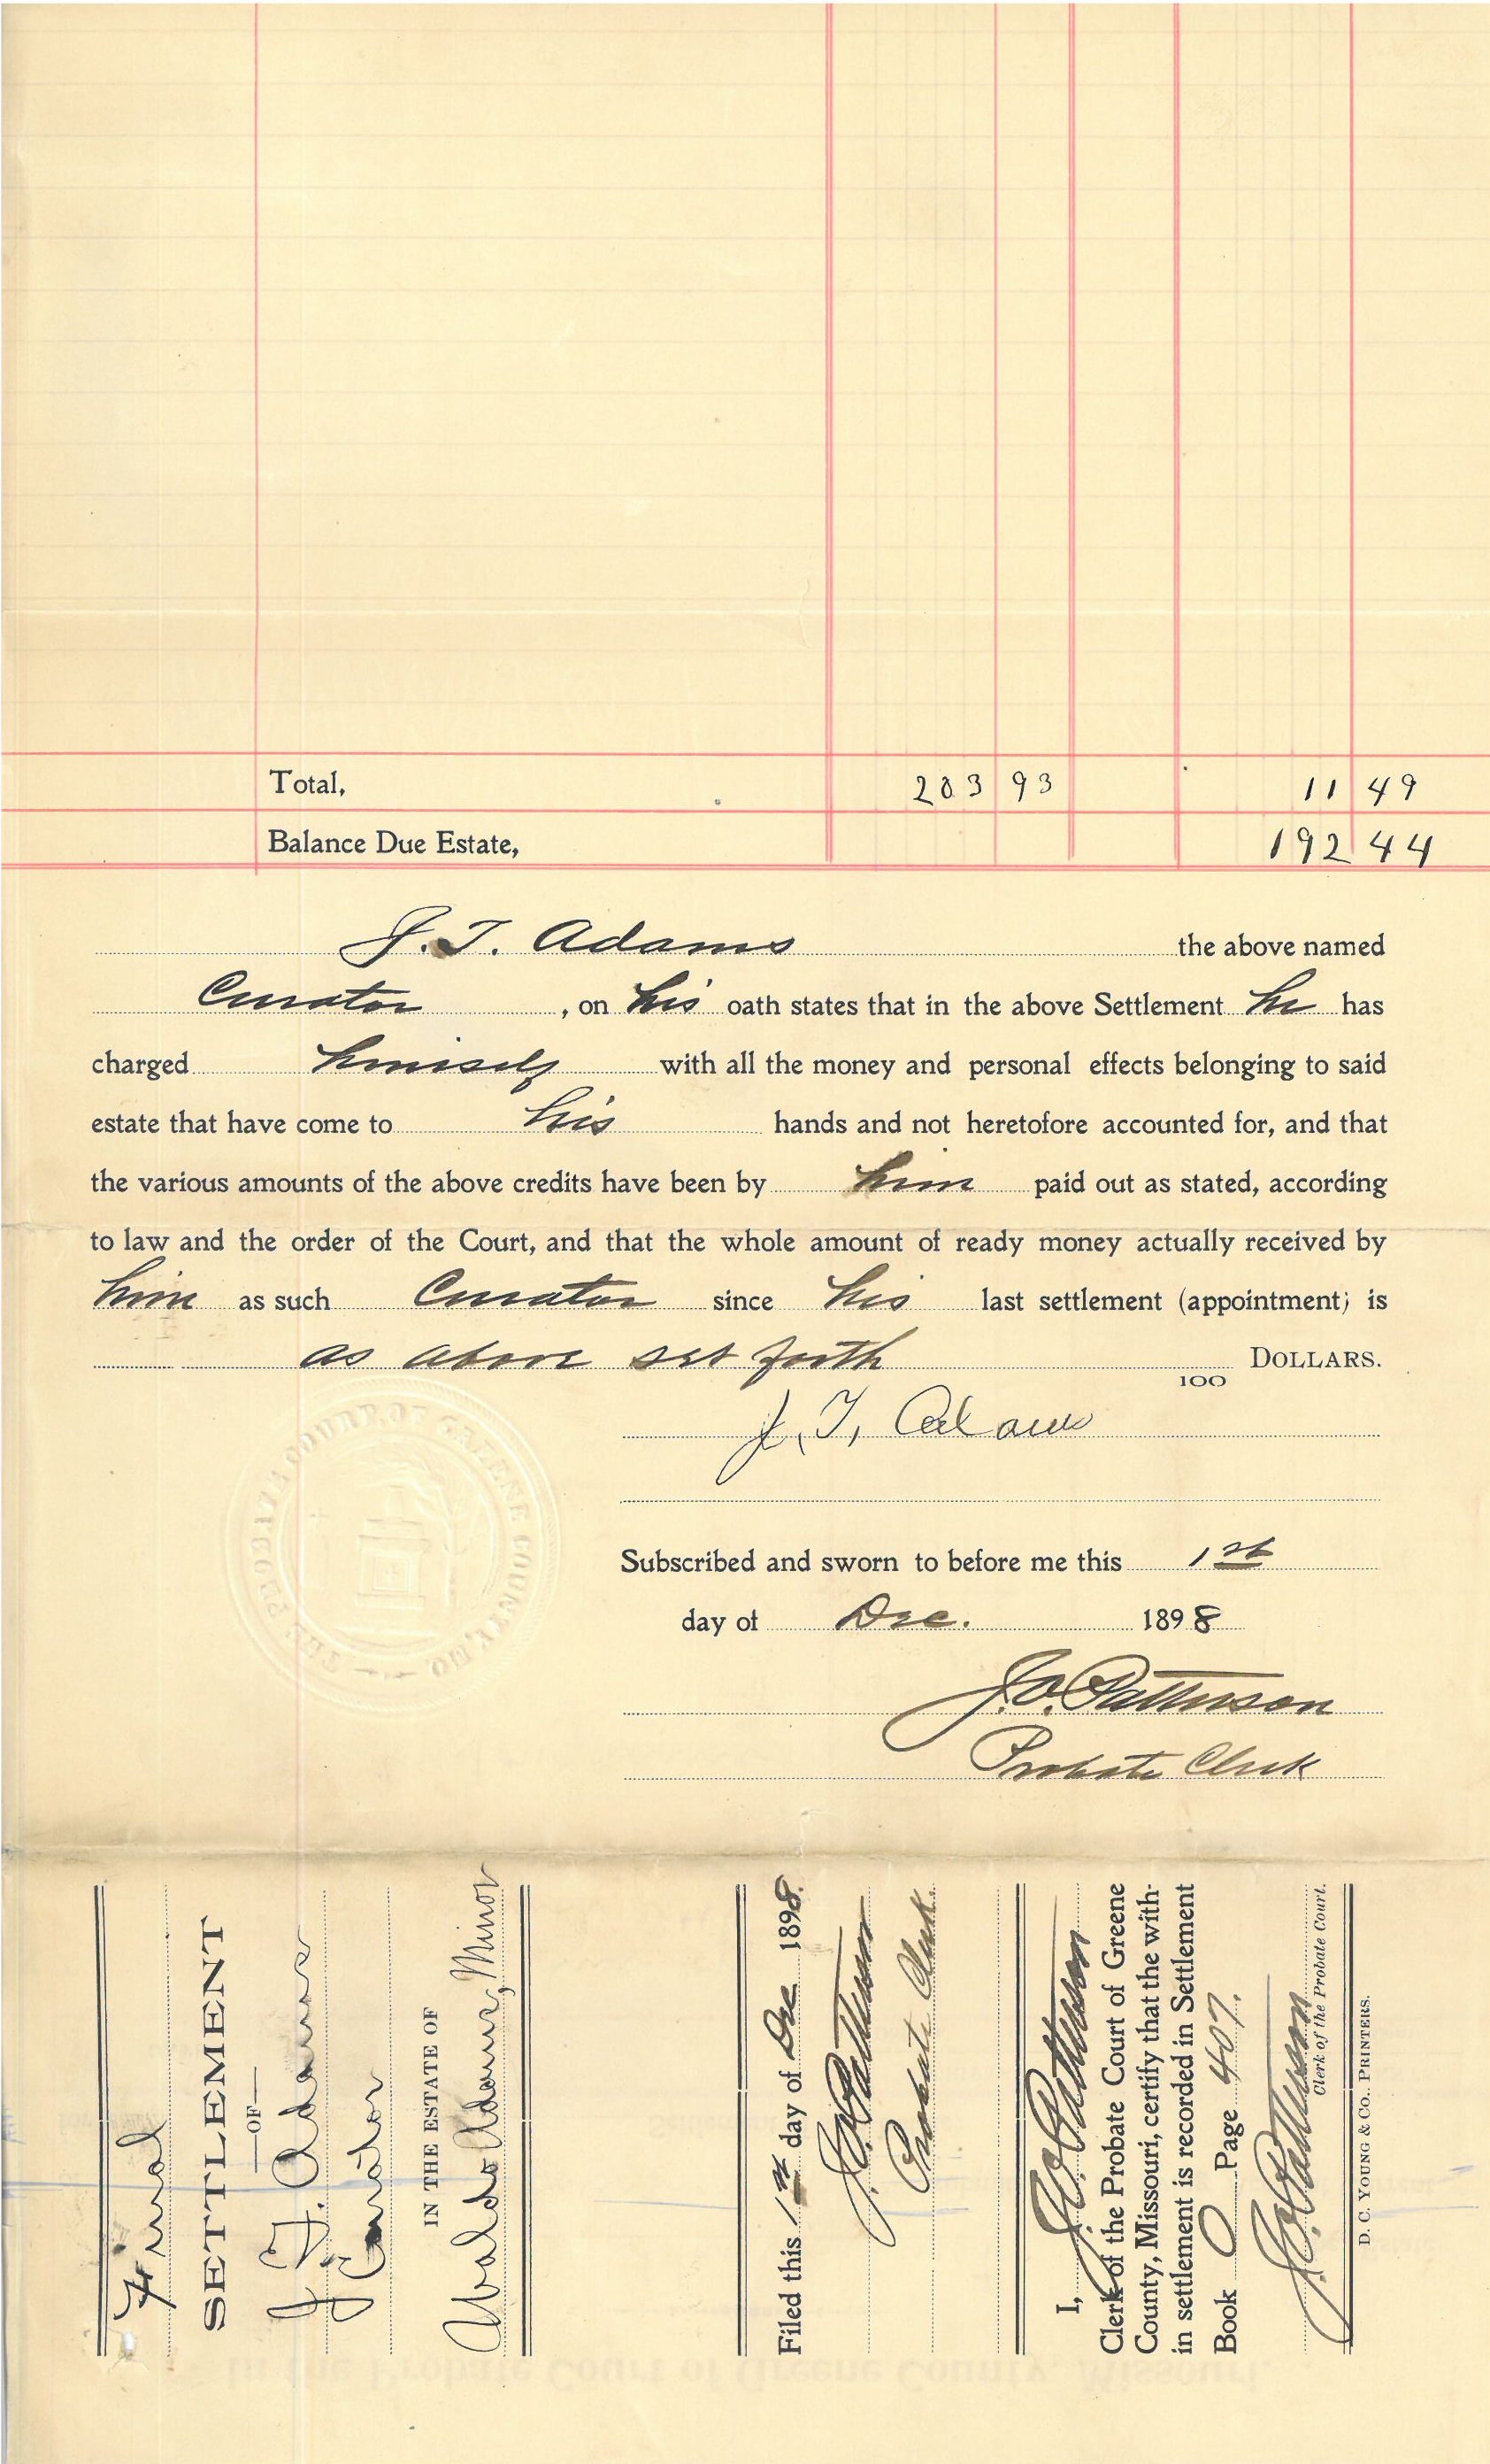 Total, 203 93 11 49
Balance Due Estate, 192 44
J. T. Adams the above named
Curator, on his oath states that in the above Settlement he has
charged himself with all the money and personal effects belonging to said
estate that have come to his hands and not heretofore accounted for, and that
the various amounts of the above credits have been by him paid out as stated, according
to law and the order of the Court, and that the whole amount of ready money actually received by
him as such Curator since his last settlement (appointment) is
as above set forth 100 DOLLARS.
J. T. Adams
THE PROBATE COURT OF GREENE COUNTY, MO.
Subscribed and sworn to before me this 1st
day of Dec. 1898
J. O. Patterson
Probate Clerk
Final
SETTLEMENT
—OF—
J. T. Adams
Curator
IN THE ESTATE OF
Waldo Adams, Minor
Filed this 1st day of Dec 1898.
J. O. Patterson
Probate Clerk.
I, J. O. Patterson
Clerk of the Probate Court of Greene
County, Missouri, certify that the with-
in settlement is recorded in Settlement
Book O Page 407.
J. O. Patterson
Clerk of the Probate Court.
D. C. YOUNG & CO., PRINTERS.
In the Probate Court of Greene County, Missouri.